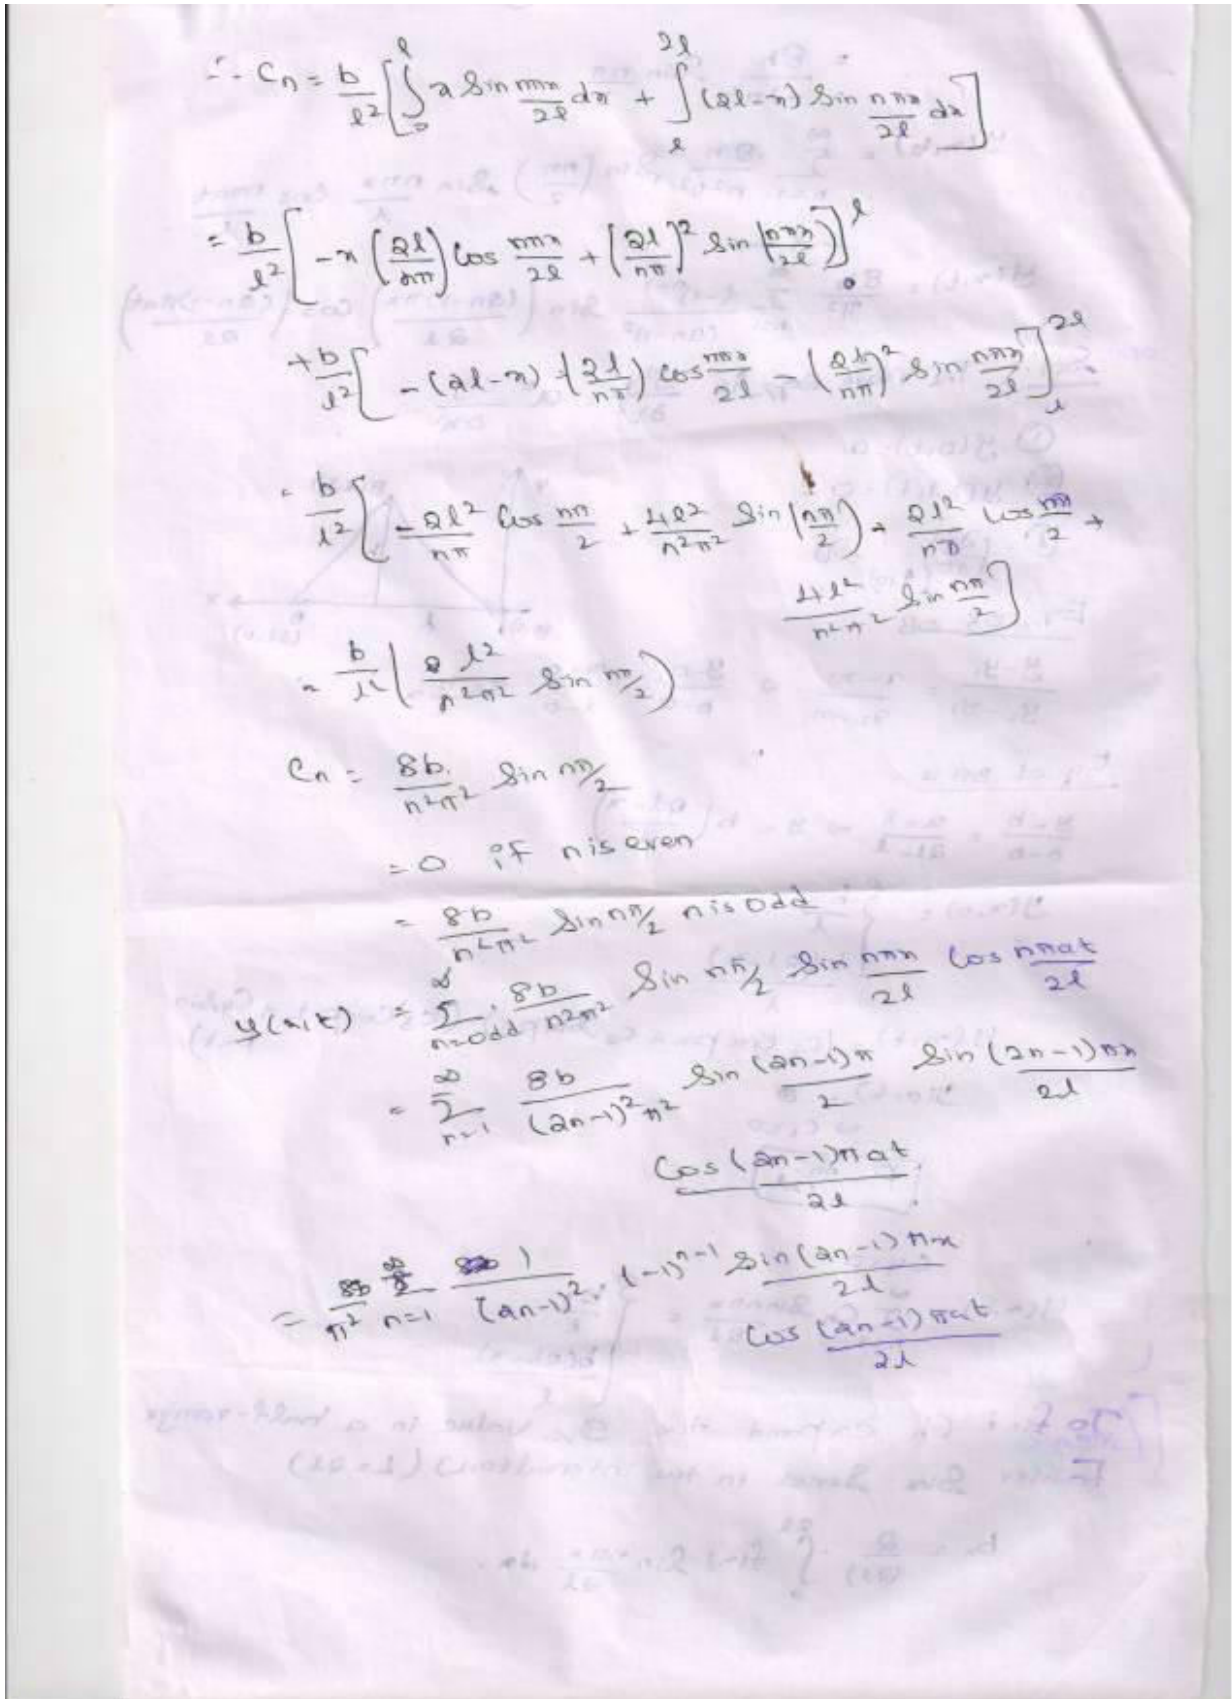 ∴ Cn = b/l² [ ∫₀^l x Sin nπx/2l dx + ∫_l^2l (2l-x) Sin nπx/2l dx ]
= b/l² [ -x (2l/nπ) Cos nπx/2l + (2l/nπ)² Sin (nπx/2l) ]₀^l
+ b/l² [ -(2l-x) (2l/nπ) cos nπx/2l - (2l/nπ)² Sin nπx/2l ]_l^2l
= b/l² [ -2l²/nπ Cos nπ/2 + 4l²/n²π² Sin (nπ/2) + 2l²/nπ Cos nπ/2 +
4l²/n²π² Sin nπ/2 ]
= b/l² ( 8l²/n²π² Sin nπ/2 )
Cn = 8b/n²π² Sin nπ/2
= 0 if n is even
= 8b/n²π² Sin nπ/2 n is odd
y(x,t) = ∞Σn=odd 8b/n²π² Sin nπ/2 Sin nπx/2l Cos nπat/2l
= ∞Σn=1 8b/(2n-1)²π² Sin (2n-1)π/2 Sin (2n-1)πx/2l
Cos (2n-1)πat/2l
= 8b/π² ∞Σn=1 1/(2n-1)² · (-1)ⁿ⁻¹ Sin (2n-1)πx/2l
Cos (2n-1)πat/2l